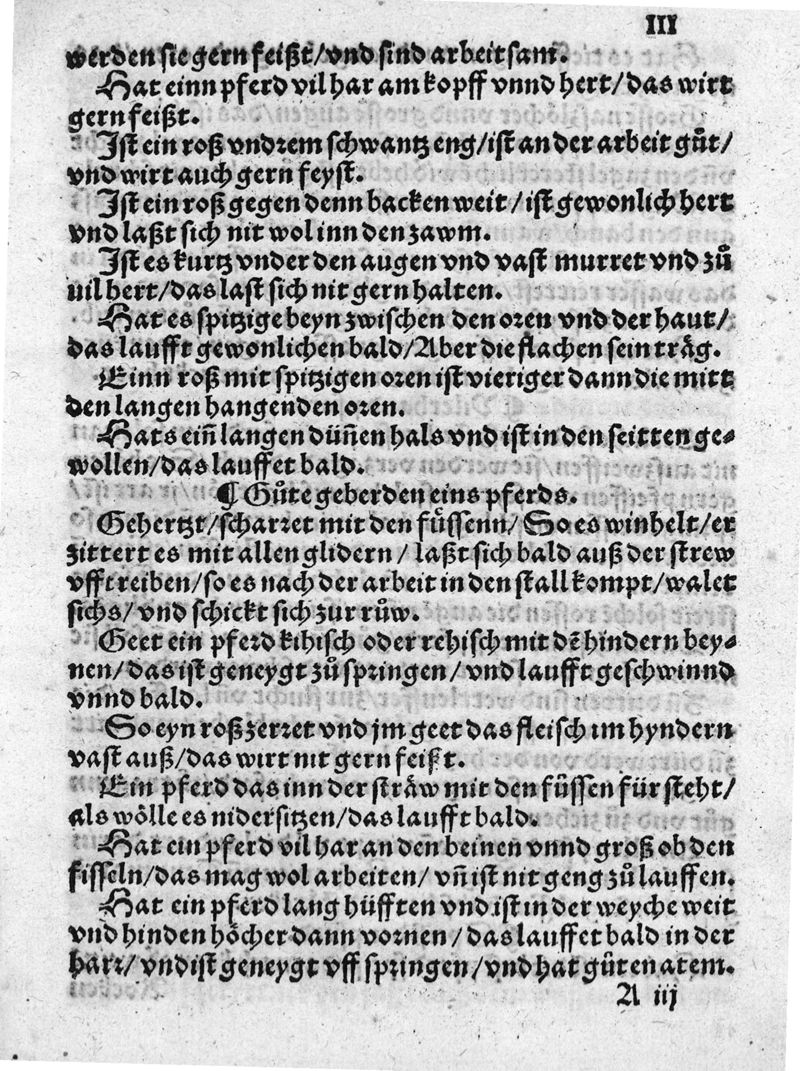 III
werden sie gern feißt/vnd sind arbeitsam.
Hat einn pferd vil har am kopff vnnd hert/das wirt
gern feißt.
Jst ein roß vndrem schwantz eng/ist an der arbeit gůt/
vnd wirt auch gern feyst.
Jst ein roß gegen denn backen weit/ist gewonlich hert
vnd laßt sich nit wol inn den zawm.
Jst es kurtz vnder den augen vnd vast murret vnd zů
uil hert/das last sich nit gern halten.
Hat es spitzige beyn zwischen den oren vnd der haut/
das laufft gewonlichen bald/Aber die flachen sein träg.
Einn roß mit spitzigen oren ist vieriger dann die mitt
den langen hangenden oren.
Hats ein̄ langen dün̄en hals vnd ist in den seitten ge⸗
wollen/das lauffet bald.
¶ Gůte geberden eins pferds.
Gehertzt/scharret mit den fůssenn/ So es winhelt/er
zittert es mit allen glidern/ laßt sich bald auß der strew
vfftreiben/so es nach der arbeit in den stall kompt/walet
sichs/ vnd schickt sich zur růw.
Geet ein pferd kihisch oder rehisch mit dē hindern bey⸗
nen/das ist geneygt zů springen/vnd laufft geschwinnd
vnnd bald.
So eyn roß zerret vnd jm geet das fleisch im hyndern
vast auß/das wirt nit gern feißt.
Ein pferd das inn der sträw mit den fůssen für steht/
als wölle es nidersitzen/das laufft bald.
Hat ein pferd vil har an den beinen vnnd groß ob den
fisseln/das mag wol arbeiten/ vn̄ ist nit geng zů lauffen.
Hat ein pferd lang hüfften vnd ist in der weyche weit
vnd hinden höcher dann vornen/das lauffet bald in der
harr/vnd ist geneygt vff springen/vnd hat gůten atem.
A iij